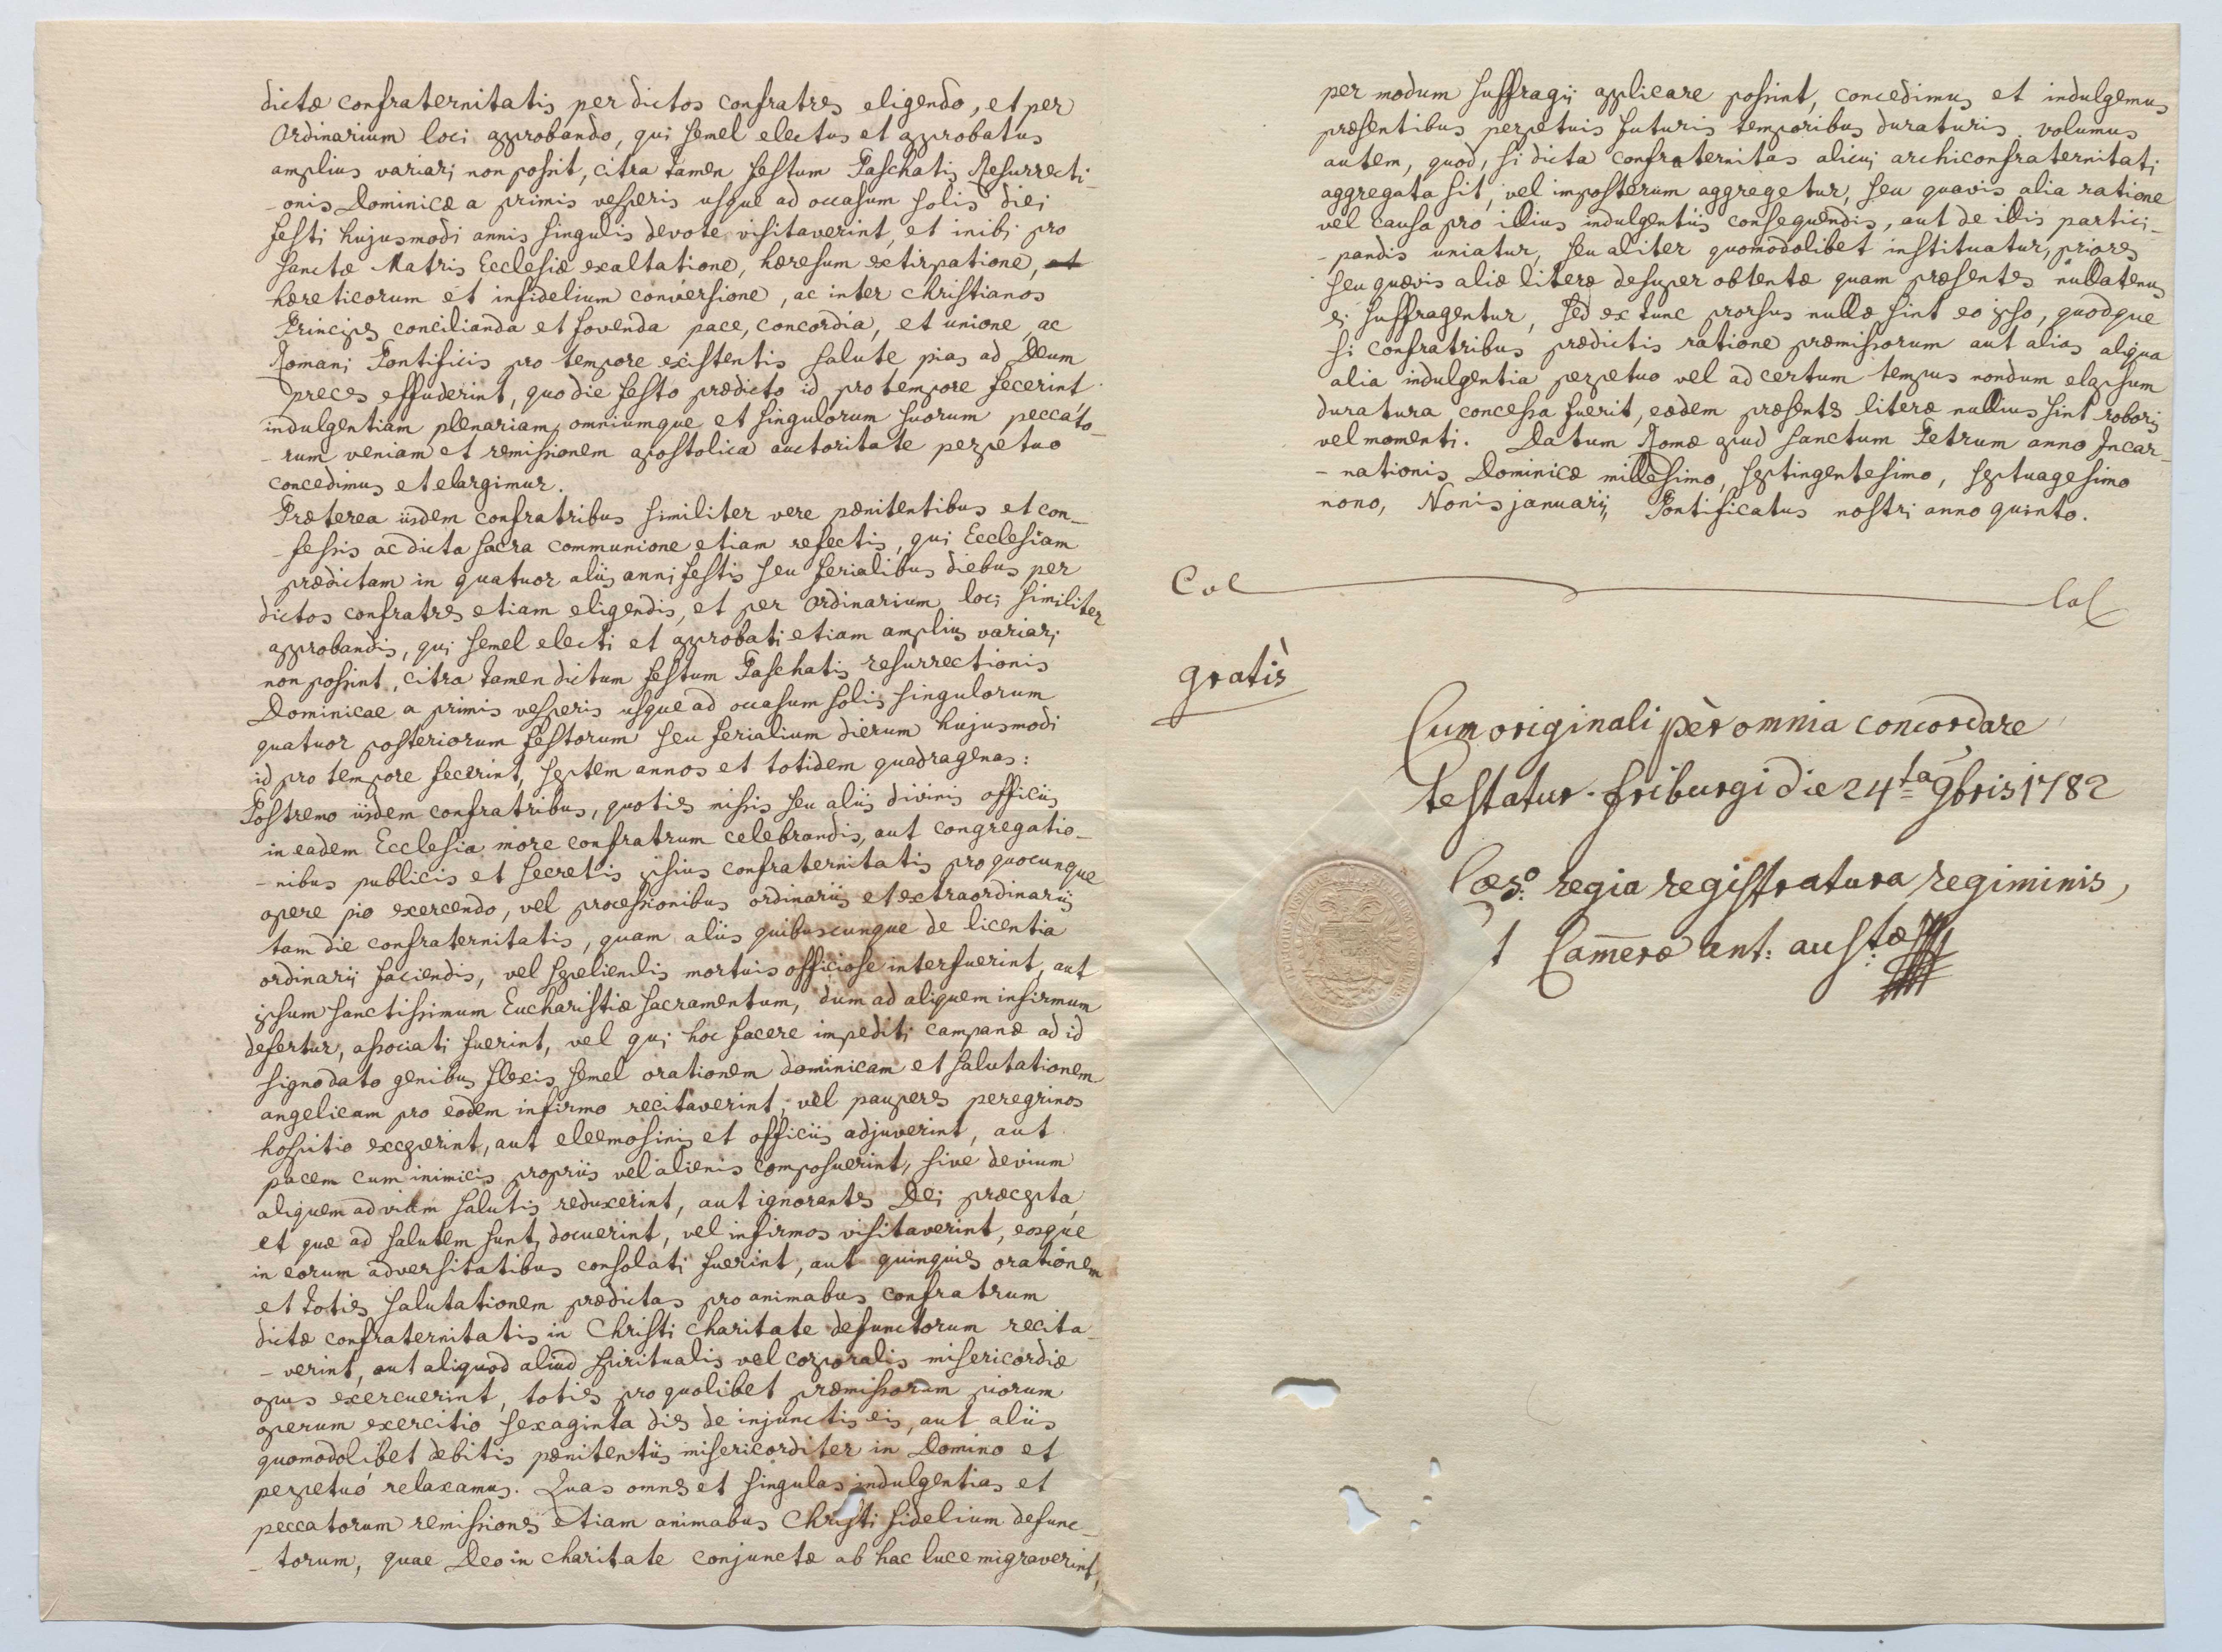 dictæ confraternitatis per dictos confratres eligendo, et per
Ordinarium loci approbando, qui semel electus et approbatus
amplius variari non possit, citra tamen festum Paschatis Resurrecti-
-onis Dominicæ a primis vesperis usque ad occasum solis diei
festi hujusmodi annis singulis devote visitaverint, et inibi pro
sanctæ Matris Ecclesiæ exaltatione, hæresum extirpatione, et
hæreticorum et infidelium conversione, ac inter christianos
Principes concilianda et fovenda pace, concordia, et unione, ac
Romani Pontificis pro tempore existentis salute pias ad Deum
preces effuderint, quo die festo prædicto id pro tempore fecerint
indulgentiam plenariam, omniumque et singulorum suorum peccato-
-rum veniam et remissionem apostolica auctoritate perpetuo
concedimus et elargimur.
Præterea iisdem confratribus similiter vere pænitentibus et con-
-fessis ac dicta sacra communione etiam refectis, qui Ecclesiam
prædictam in quatuor aliis anni festis seu ferialibus diebus per
dictos confratres etiam eligendis, et per Ordinarium loci similiter
approbandis, qui semel electi et approbati etiam amplius variari
non possint, citra tamen dictum festum Paschatis resurrectionis
Dominicae a primis vesperis usque ad occasum solis singulorum
quatuor posteriorum festorum seu ferialium dierum hujusmodi
id pro tempore fecerint, septem annos et totidem quadragenas:
Postremo iisdem confratribus, quoties missis seu aliis divinis officiis
in eadem Ecclesia more confratrum celebrandis, aut congregatio-
-nibus publicis et secretis ipsius confraternitatis pro quocunque
opere pio exercendo, vel processionibus ordinariis et extraordinariis
tam die confraternitatis, quam aliis quibuscunque de licentia
ordinarij faciendis, vel sepeliendis mortuis officiose interfuerint, aut
ipsum sanctissimum Eucharistiæ sacramentum, dum ad aliquem infirmum
defertur, associati fuerint, vel qui hoc facere impediti campanæ ad id
signo dato genibus flexis semel orationem dominicam et salutationem
angelicam pro eodem infirmo recitaverint, vel pauperes peregrinos
hospitio exceperint, aut eleemosinis et officiis adjuverint, aut
pacem cum inimicis propriis vel alienis composuerint, sive devium
aliquem ad viam salutis reduxerint, aut ignorantes Dei præcepta,
et quæ ad salutem sunt, docuerint, vel infirmos visitaverint, eosque
in eorum adversitatibus consolati fuerint, aut quinquies orationem
et toties salutationem prædictas pro animabus confratrum
dictæ confraternitatis in Christi charitate defunctorum recita-
-verint, aut aliquod aliud spiritualis vel corporalis misericordiæ
opus exercuerint, toties pro quolibet præmissorum piorum
operum exercitio sexaginta dies de injunctis eis, aut aliis
quomodolibet debitis pænitentiis misericorditer in Domino et
perpetuó relaxamus. Quas omnes et singulas indulgentias et
peccatorum remissiones etiam animabus Christi fidelium defunc-
-torum, quae Deo in charitate conjunctæ ab hac luce migraverint,
per modum suffragij applicare possint, concedimus et indulgemus
præsentibus perpetuis futuris temporibus duraturis. volumus
autem, quod, si dicta confraternitas alicui archiconfraternitati
aggregata sit, vel imposterum aggregetur, seu quavis alia ratione
vel causa pro illius indulgentiis consequendis, aut de illis partici-
-pandis uniatur, seu aliter quomodolibet instituatur, priores
seu quævis aliæ literæ desuper obtentæ quam præsentes nullatenus
ei suffragentur, sed ex tunc prorsus nullæ sint eo ipso, quodque
si confratribus prædictis ratione præmissorum aut alias aliqua
alia indulgentia perpetuo vel ad certum tempus nondum elapsum
duratura concessa fuerit, eædem præsentes literæ nullius sint roboris
vel momenti. Datum Romæ apud sanctum Petrum anno Incar-
-nationis Dominicæ millesimo, septingentesimo, septuagesimo
nono, Nonis januarij, Pontificatus nostri anno quinto.
gratis
Cum originali per omnia concordare
testatur. friburgi die 24ta 9bris 1782
Cæs:o regia registratura regiminis,
Cameræ ant: aust:æ